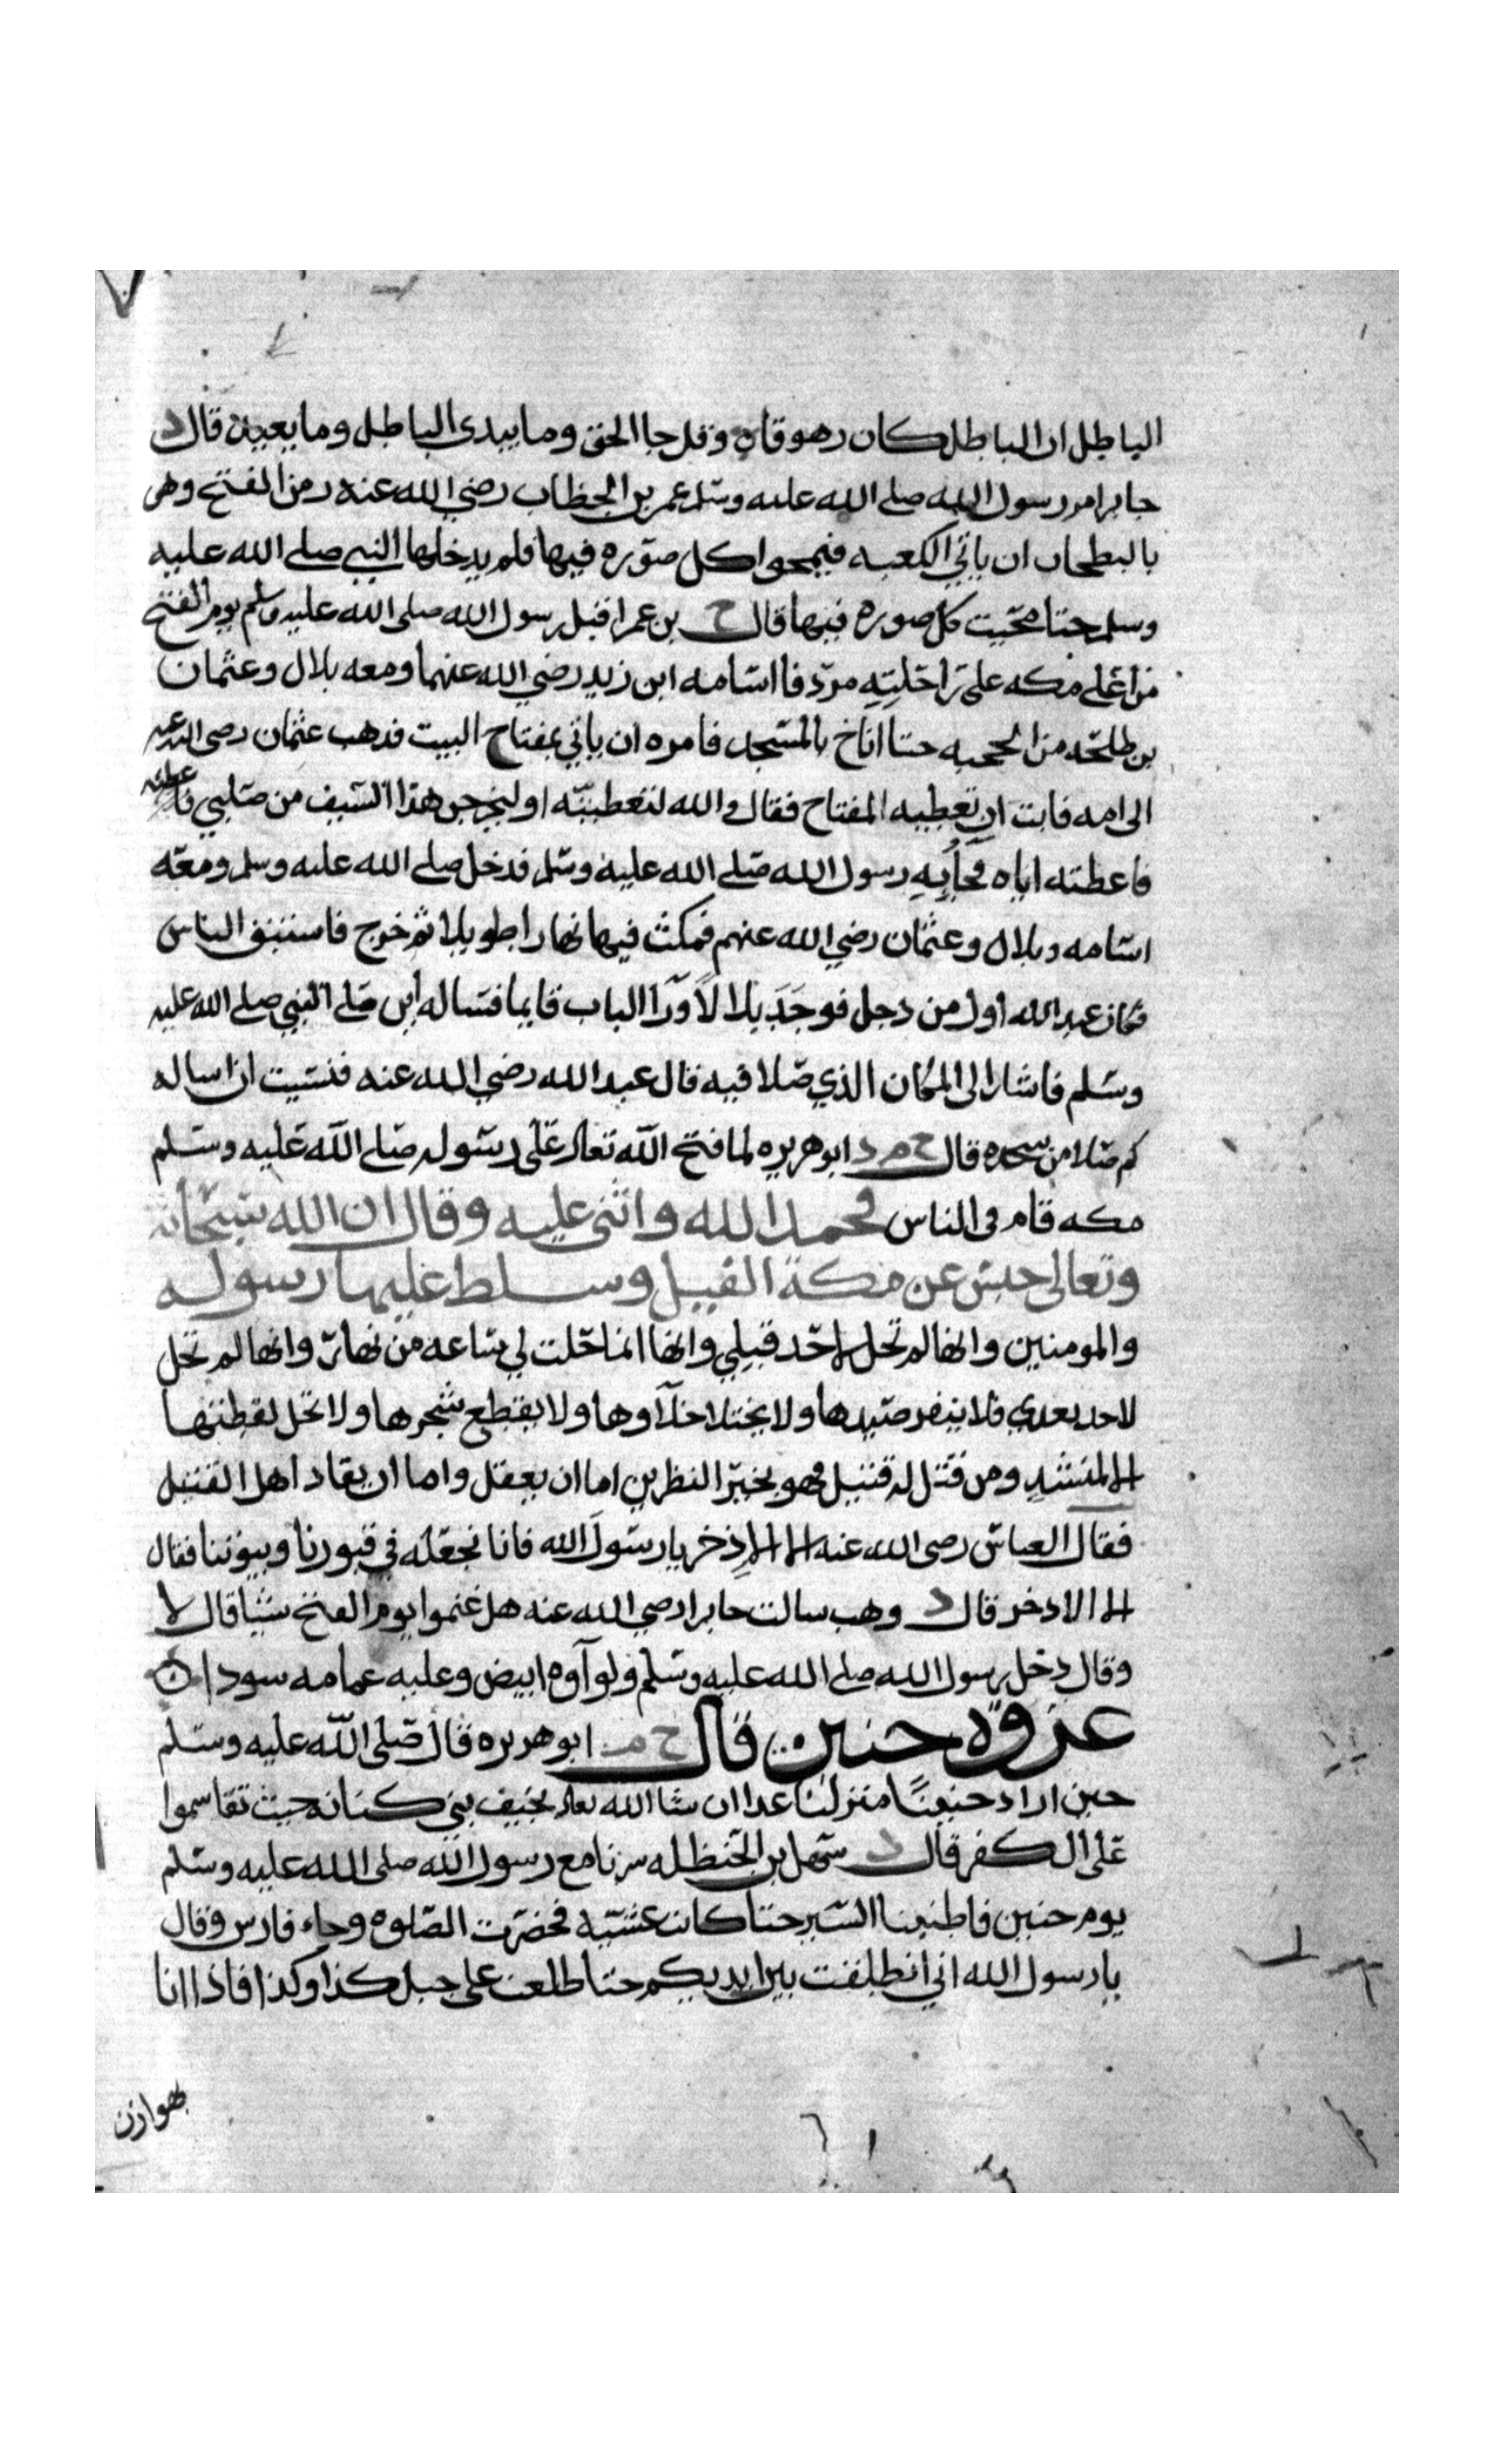 الباطل ان الباطل كان زهوقاه وقل جا الحق وما يبدى الباطل وما يعيد قال د
جابر امر رسول الله صلى الله عليه وسلم عمر بن الخطاب رضي الله عنه زمن الفتح وهى
بالبطحا ان ياتي الكعبه فيمحوا كل صوره فيها فلم يدخلها النبي صلى الله عليه
وسلم حتا محيت كل صوره فيها قال ح بن عمر اقبل رسول الله صلى الله عليه وسلم يوم الفتح
من اعلى مكه على راحلته مردفا اسامه ابن زيد رضي الله عنهما ومعه بلال وعثمان
بن طلحه من الحجبه حتا اناخ بالمسجد فامره ان ياتي بمفتاح البيت فذهب عثمان رضى الله عنه
الى امه فابت ان تعطيه المفتاح فقال والله لتعطينه او ليخرجن هذا السيف من صلبي
فاعطته اياه فجا به رسول الله صلى الله عليه وسلم فدخل صلى الله عليه وسلم ومعه
اسامه وبلال وعثمان رضي الله عنهم فمكث فيها نهارا طويلا ثم خرج فاستبق الناس
فكان عبد الله اول من دخل فوجد بلالا ورا الباب قايما فساله اين صلى النبي صلى الله عليه
وسلم فاشار الى المكان الذي صلا فيه قال عبد الله رضي الله عنه فنسيت ان اساله
كم صلا من سجده قال ح م د ابو هريره لما فتح الله تعالى على رسوله صلى الله عليه وسلم
مكه قام في الناس فحمد الله واثنى عليه وقال ان الله سبحانه
وتعالى حبس عن مكة الفيل وسلط عليها رسوله
والمومنين وانها لم تحل لاحد قبلي وانها انما احلت لي ساعه من نهار وانها لم تحل
لاحد بعدي فلا ينفر صيدها ولا يختلا خلاوها ولا يقطع شجرها ولا تحل لقطتها
الا لمنشد ومن قتل له قتيل فهو بخير النظرين اما ان يعقل واما ان يقاد اهل القتيل
فقال العباس رضى الله عنه الا الاذخر يا رسول الله فانا نجعله في قبورنا وبيوتنا فقال
الا الاذخر قال د وهب سالت جابرا رضي الله عنه هل غنموا يوم الفتح شيا قال لا
وقال دخل رسول الله صلى الله عليه وسلم ولواوه ابيض وعليه عمامه سودا
غزوه حنين قال ح م ابو هريره قال صلى الله عليه وسلم
حين اراد حنينا منزلنا غدا ان شا الله تعالى بخيف بني كنانه حيث تقاسموا
على الكفر قال د سهل بن الحنظله سرنا مع رسول الله صلى الله عليه وسلم
يوم حنين فاطنبنا السير حتا كانت عشيه فحضرت الصلوه وجاء فارس وقال
يا رسول الله اني انطلقت بين ايديكم حتا طلعت على جبل كذا وكذا فاذا انا
بهوازن